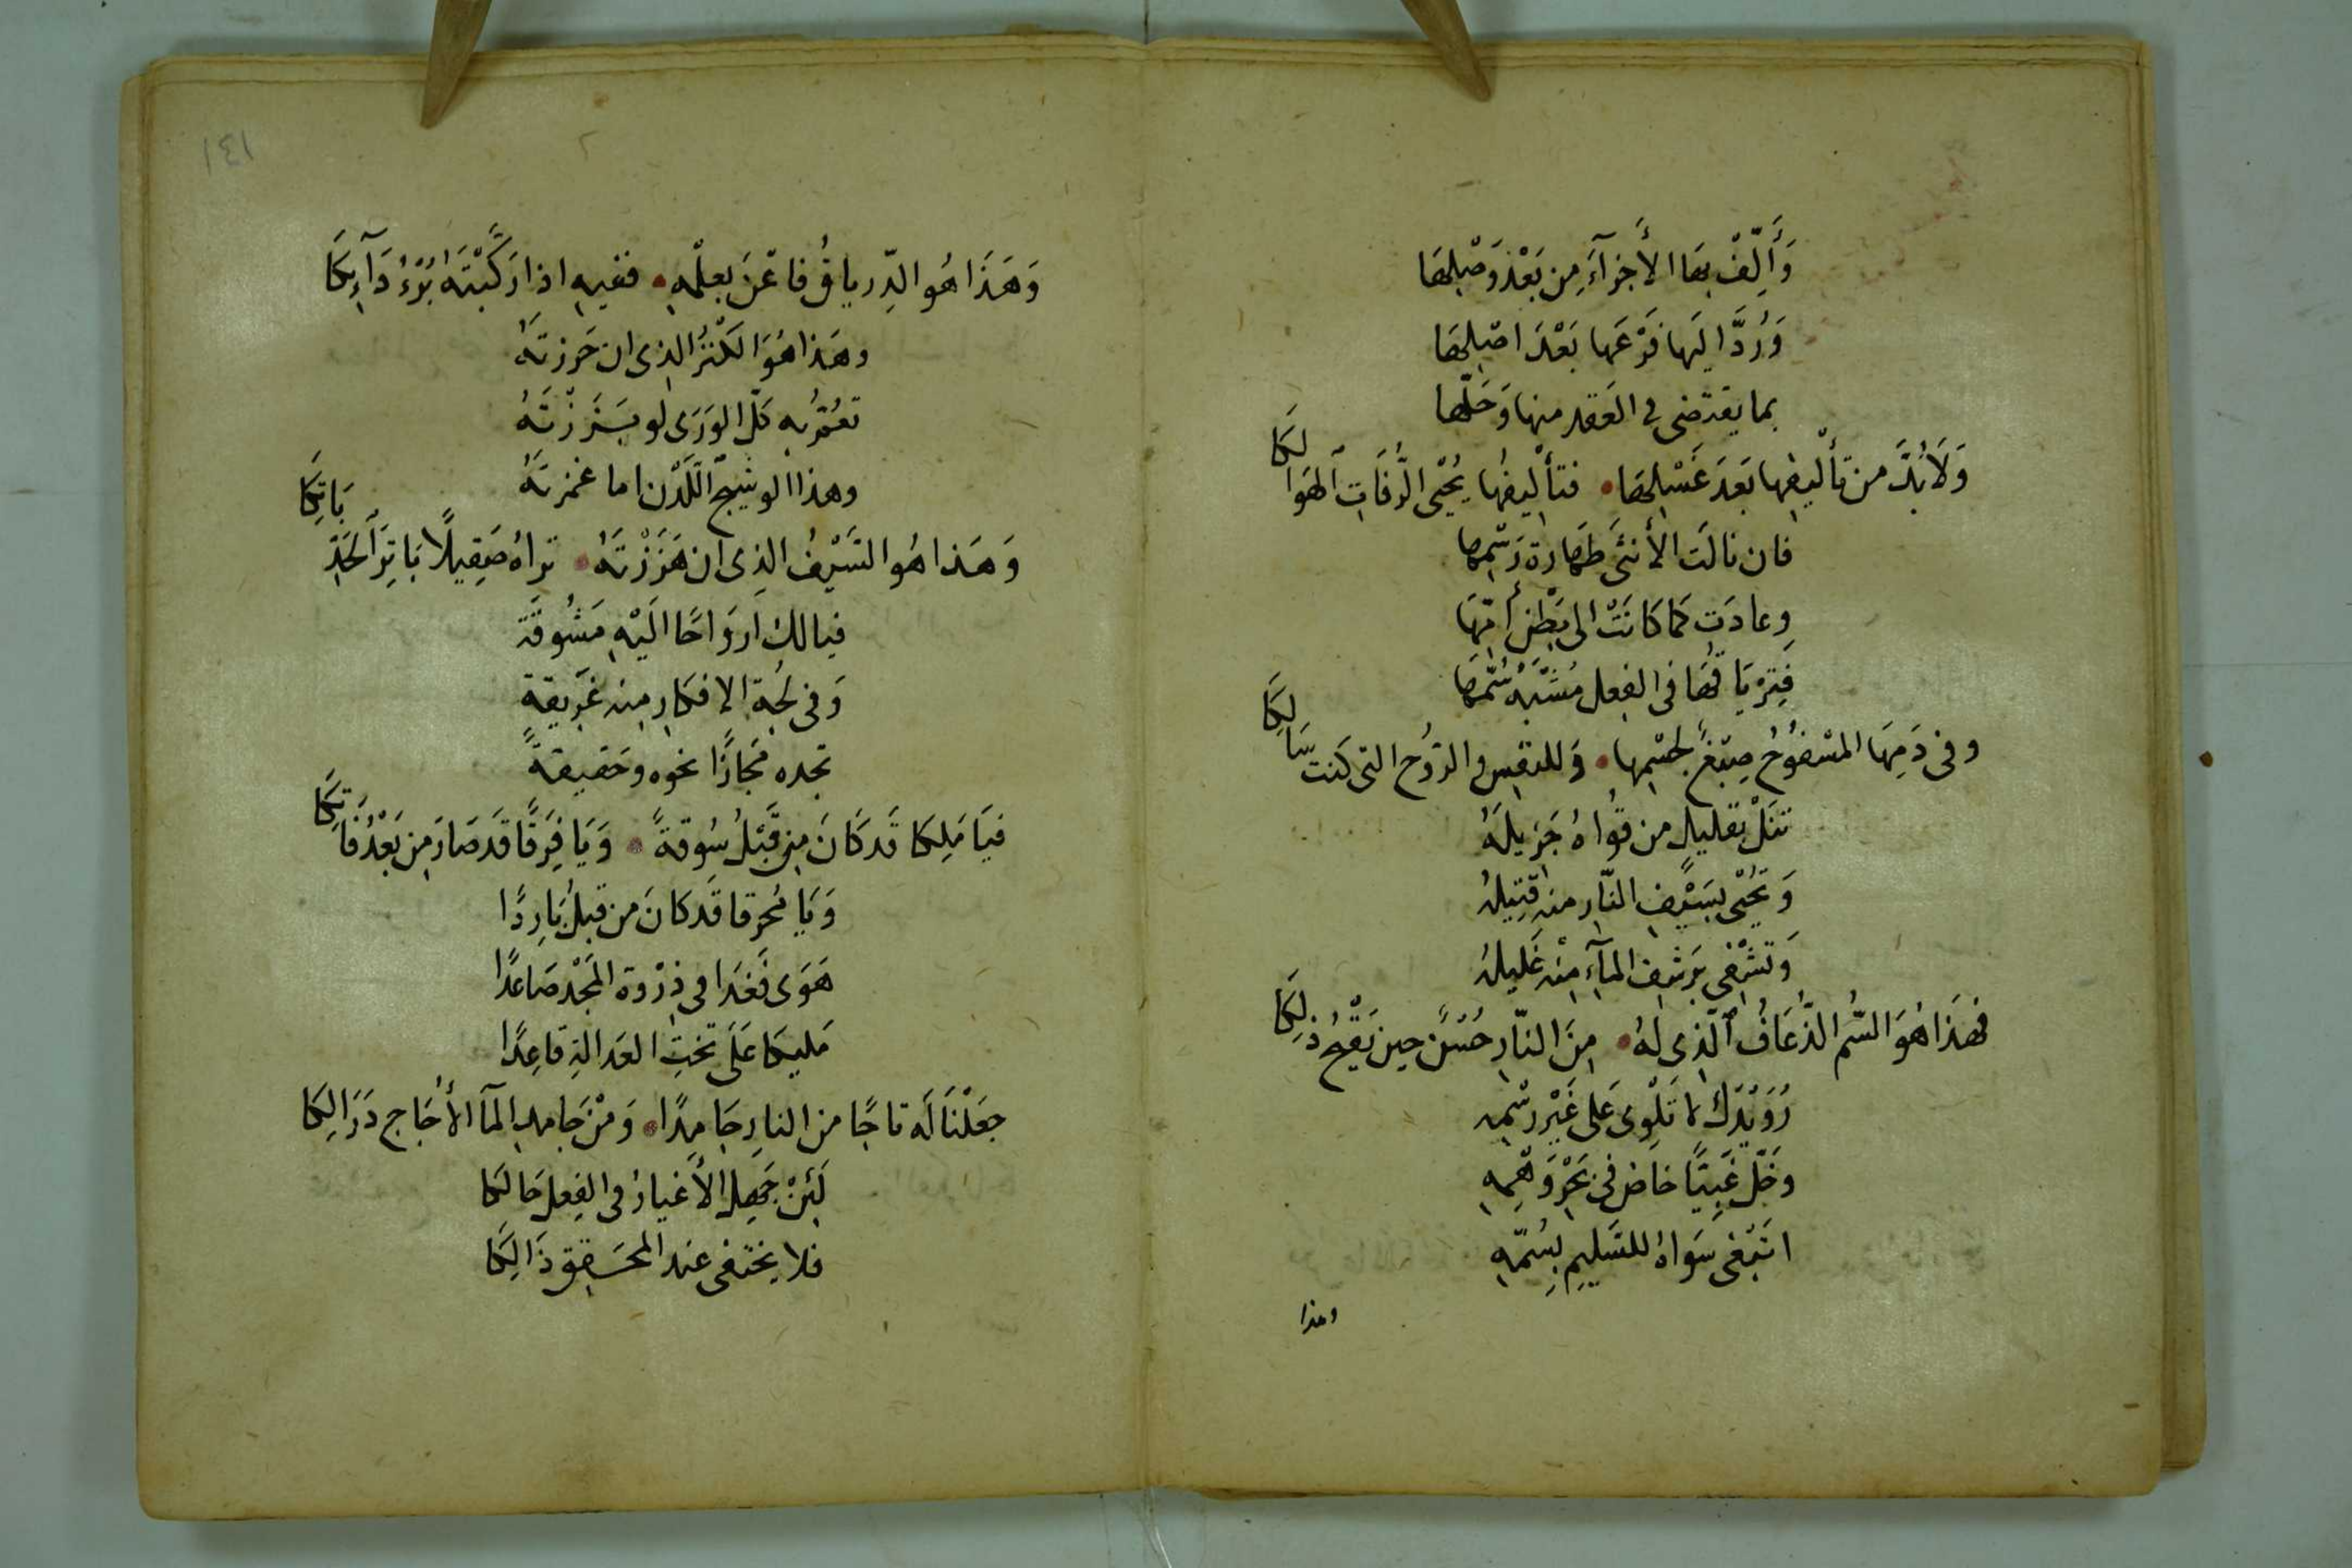 وَأَلِّفْ بِهَا الأَجْزَآءَ مِن بَعْدِ وَصْلِهَا
وَرُدَّ اليَها فَرْعَها بَعْدَ اصْلِهَا
بما يقتضى في العَقد منها وَحَلّها
وَلَابُدَّ من تَأْليفِها بَعدَ غَسْلِهَا • فتأليفُها يُحْيى الرُّفَاتِ الهَوَالِكَا
فان نالَت الأُنثَى طَهَارة رَسْمِها
وعادَت كمَا كَانَتْ الى بَطْنِ أُمّهَا
فَتِرْيَاقُهَا فى الفِعل مُشَبَّهُ سُمّهَا
وفى دَمِهَا المَسْفُوحُ صِبْغٌ لجِسْمِها • وَللنفِس والرّوُح التى كنتَ سَالِكَا
تنَلْ بقليلٍ من قُواهُ جَزِيلَهُ
وَتحُيْى بسَيْفِ النّارِ منه قَتِيلَهُ
وَتَشْفى بَرَشفِ المآءِ مِنْه غَليلَهُ
فهَذَا هُوَ السُّم الذُّعَافُ الَّذِى لهُ • مِنَ النّارِ حُسْنٌ حِين يَقْبُحُ ذلِكَا
رُوَيْدَكَ لا تَلْوِى عَلى غَيْر رسْمِه
وخَلّ غَبِيًّا خاضَ فى بَحْرِ وَهْمِهِ
اتَبْغى سَواهُ للسَّلِيم بِسُمّهِ
وهذا
١٤١
وَهَذَا هُو الدِّرياقُ فاعْنَ بعِلْمِهِ • ففيهِ اذا رَكَّبْتَهُ بُرْءُ دَآئِكَا
وهَذا هُوَ الكَنْزُ الذِى ان حَرزتَهُ
تعُمّ بهِ كلّ الوَرَى لو بَرَزْتَهُ
وهذا الوشيجُ اللَّدْن اما غمزتَهُ
وَهَذا هُو السَّيْفُ الذِى ان هَزَزْتَهُ • تراهُ صَقِيلًا بَاتِرَ الحَدِّ بَاتِكَا
فيالك اروَاحًا اليْهِ مَشُوقَة
وَفى لُجةِ الافكارِ مِنه غَرِيقةٍ
تجده مَجَازًا نحوه وحَقيقةً
فيَا مَلِكا قَد كَانَ مِن قَبْلُ سُوقةً • وَيَا فَرَقًا قَد صَارَ مِن بَعْدُ فَاتِكَا
وَيَا مُحرقا قَد كانَ من قبلُ بَارِدًا
هَوَى فَغَدا فى ذِرْوة المَجْد صَاعدًا
مَليكا عَلَى تختِ العَدالةِ قاعِدًا
جعَلْنَا لَه تاجًا من النارِ جَامِدًا • وَمْن جَامِد المآ الأُجَاج دَرَالكا
لَئِنْ جَهِلَ الأَغيارُ فى الفِعل حَالهَا
فلا يختفى عند المحَقِقِ ذَالِكَا